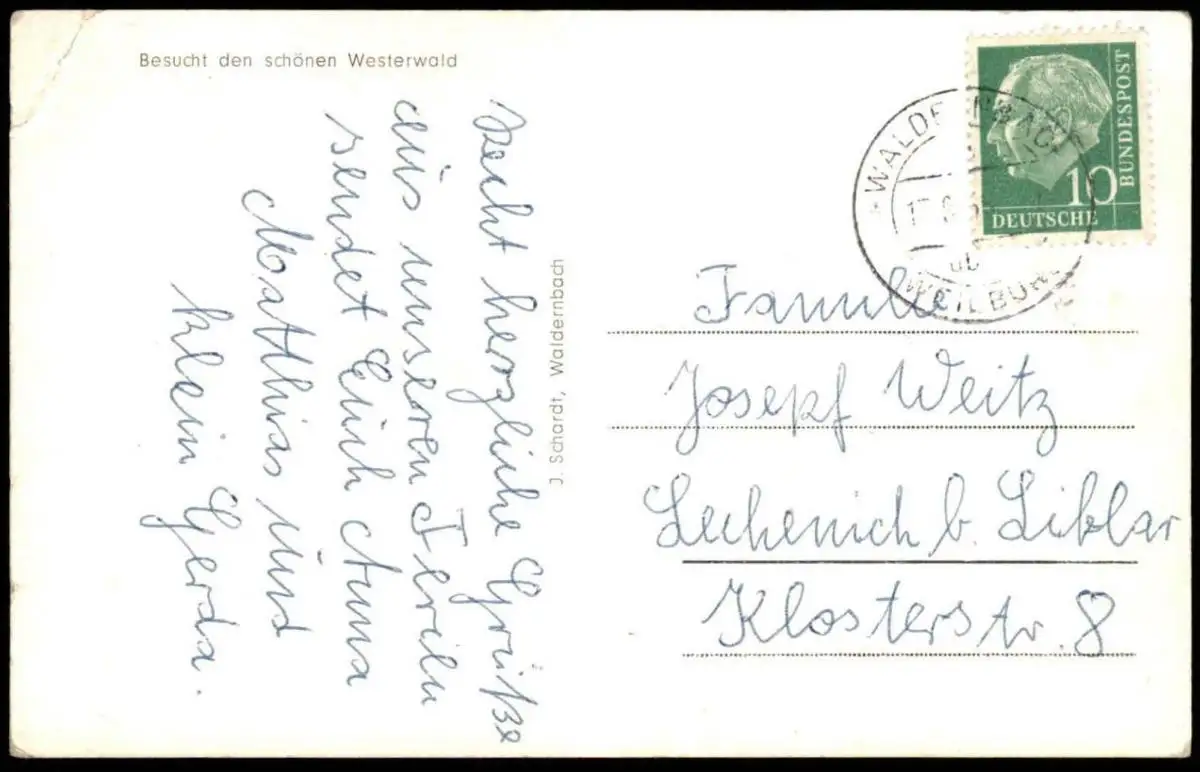 Besucht den schönen Westerwald
Recht herzliche Grüße
aus unseren Ferien
sendet Euch Anna
Matthias und
klein Gerda.
J. Schardt, Waldernbach
WALDERNBACH
üb
WEILBURG
10
DEUTSCHE
BUNDESPOST
Familie
Josepf Weitz
Lechenich b. Liblar
Klosterstr. 8